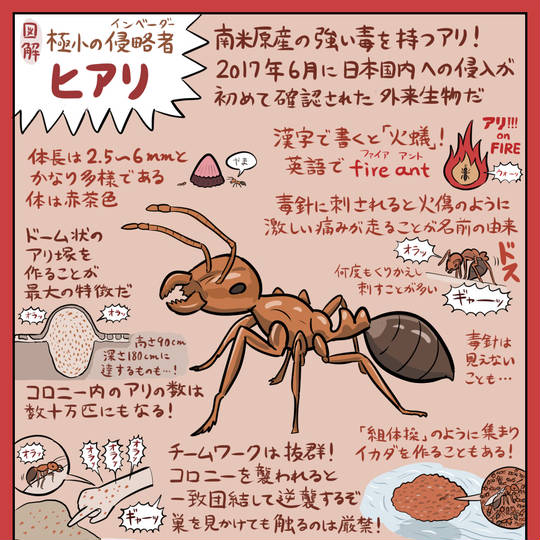 図解
インベーダー
極小の侵略者
ヒアリ
南米原産の強い毒を持つアリ!
2017年6月に日本国内への侵入が
初めて確認された外来生物だ
体長は2.5〜6mmと
かなり多様である
体は赤茶色
漢字で書くと「火蟻」!
ファイア アント
英語で fire ant
アリ!!!
on
FIRE
ウォーッ
毒針に刺されると火傷のように
激しい痛みが走ることが名前の由来
オラッ
ドス
何度もくりかえし
刺すことが多い
ギャーーッ
毒針は
見えない
ことも…
ドーム状の
アリ塚を
作ることが
最大の特徴だ
オラッ
オラッ
高さ90cm
深さ180cmに
達するものも…!
コロニー内のアリの数は
数十万匹にもなる!
オラッ
オラッ
オラッ
オラッ
ギャーッ
チームワークは抜群!
コロニーを襲われると
一致団結して逆襲するぞ
巣を見かけても触るのは厳禁!
「組体操」のように集まり
イカダを作ることもある!